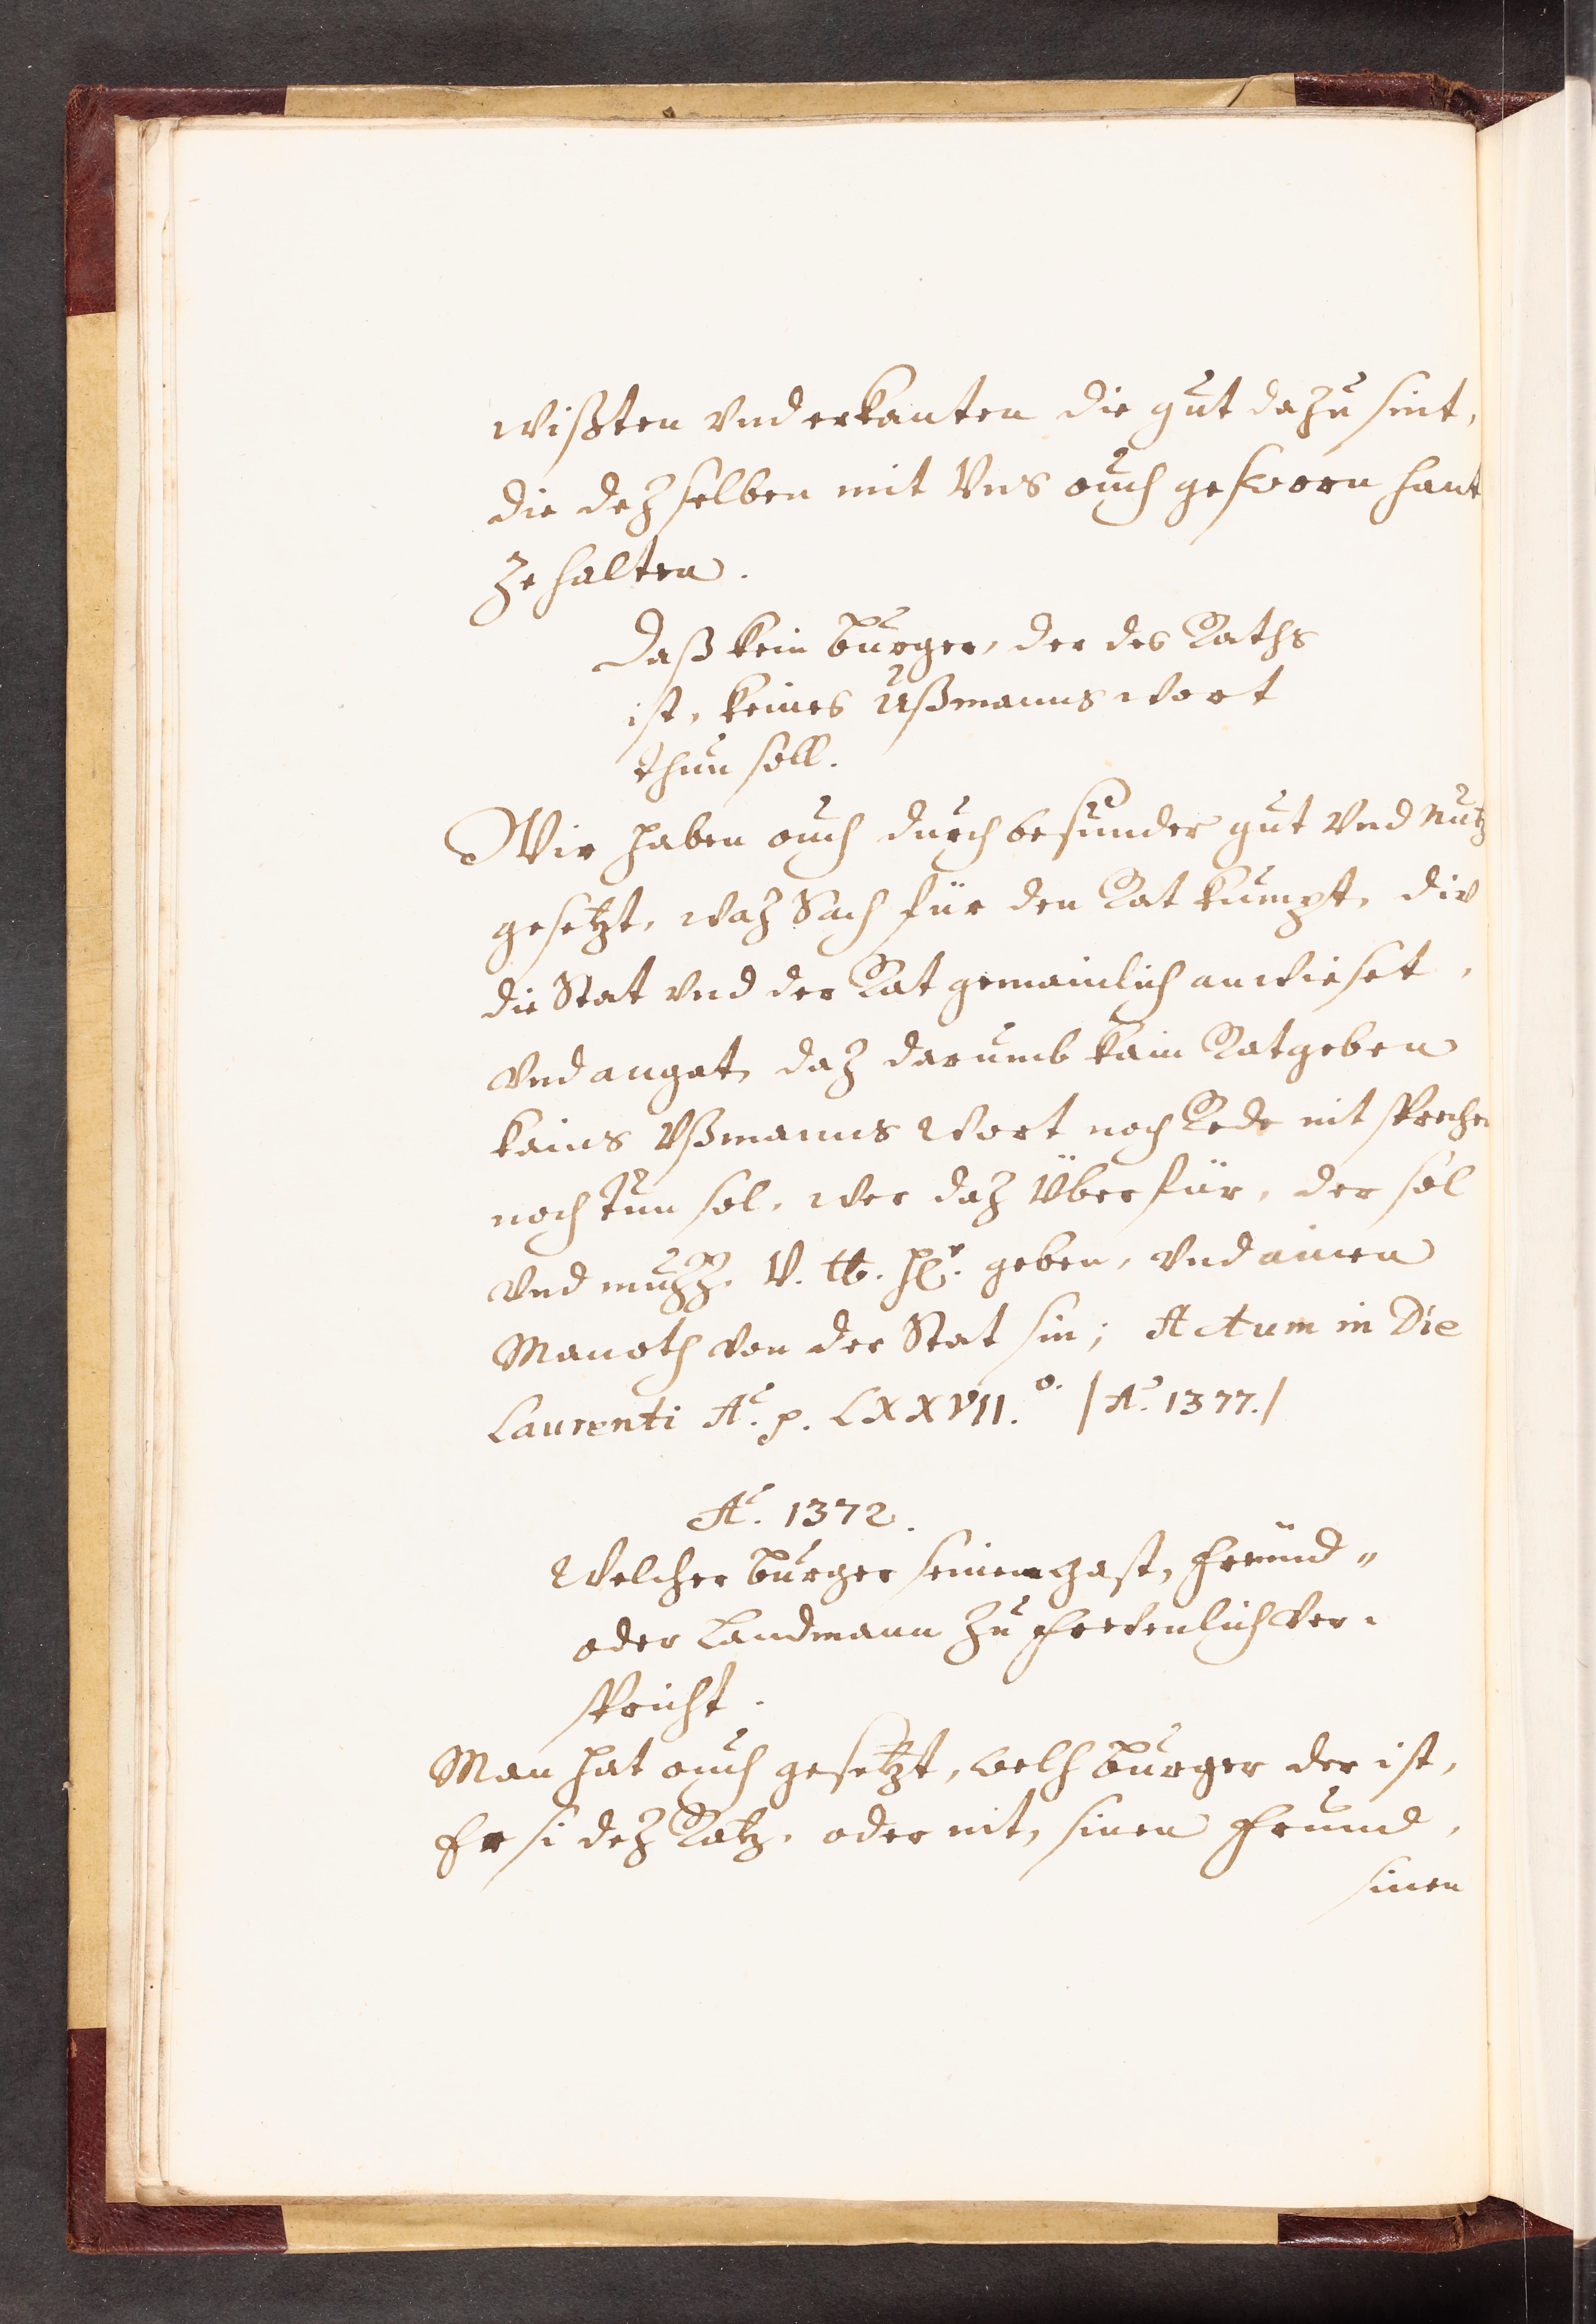 wißten vnd erkanten die gut dazu sint,
die dez selben mit Vns ouch gesworn hant
ze halten.
Daß kein burger, der des Raths
ist, keines Ußmanns wort
thun soll.
Wir haben ouch durch besunder gut vnd nutz
gesetzt, waz Sach für den Rat kumpt, div
die Stat vnd der Rat gemainlich anwiset,
vnd angat, daz darumb kain Ratgeben
kains Vßmanns wort noch Rede nit sprechen
noch tun sol, wer daz Überfür, der sol
vnd muzz. V. ℔. hlr. geben, vnd ainen
Manoth von der Stat sin; Actum in Die
Laurenti Ao. p. LXXVII.o. /Ao. 1377./
Ao. 1372.
Welcher burger seinen gast, freünd„
oder Landmann zu frevenlich ver-
spricht.
Man hat ouch gesetzt, welh burger der ist,
Er si dez Ratz, oder nit, sinen frund,
sinen